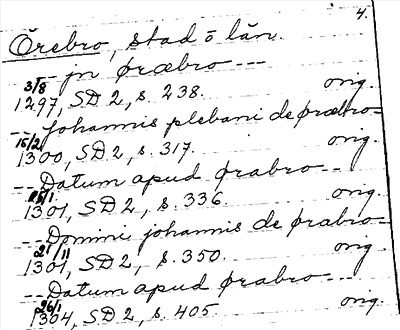 4.
Örebro, stad o län.
-- jn øræbro ---
3/8 1297, SD 2, s. 238. orig.
-- Johannis plebani de øræbro-
15/2 1300, SD 2, s. 317. orig.
-- Datum apud ørabro --
25/1 1301, SD 2, s. 336. orig.
-- Domini johannis de ørabro--
21/11 1301, SD 2, s. 350. orig.
-- Datum apud ørabro ---
26/1 1304, SD 2, s. 405. orig.